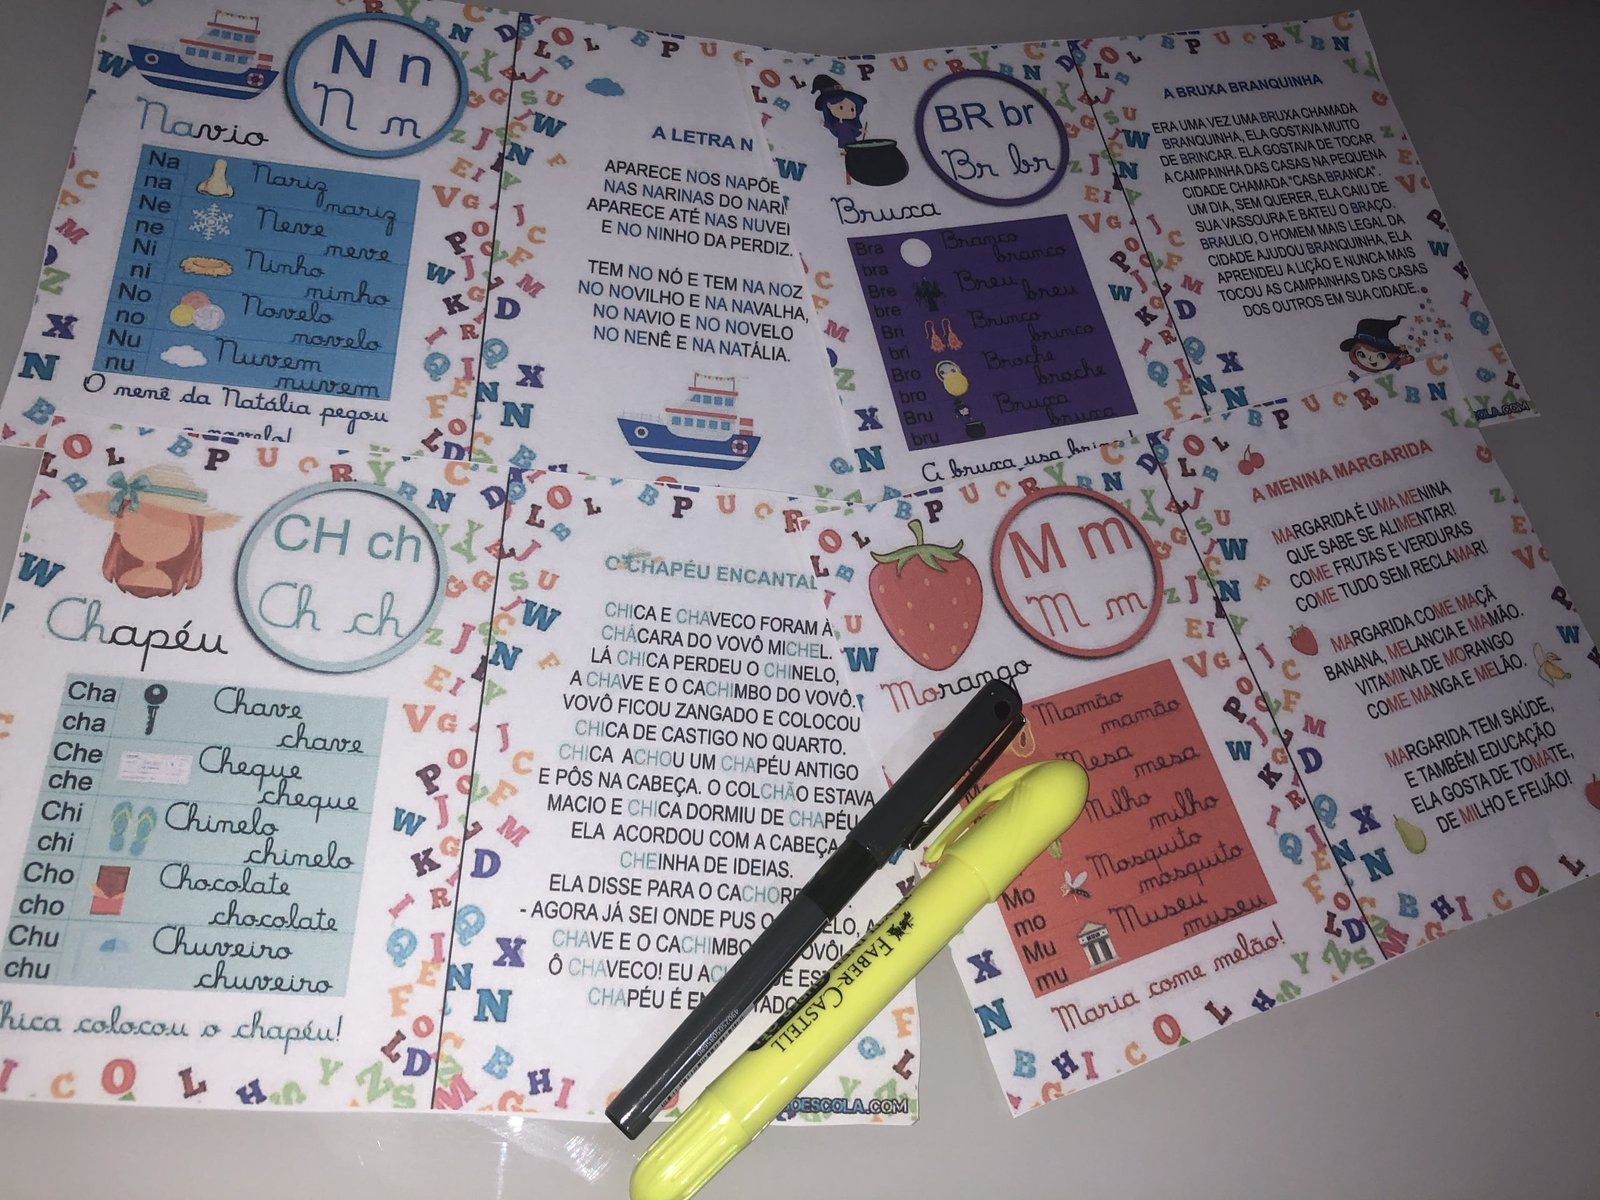 N n
N n
Navio
Na
na
Nariz
nariz
Ne
ne
Neve
neve
Ni
ni
Ninho
ninho
No
no
Novelo
novelo
Nu
nu
Nuvem
nuvem
O nenê da Natália pegou
novelo!
A LETRA N
APARECE NOS NAPÕE
NAS NARINAS DO NARI
APARECE ATÉ NAS NUVE
E NO NINHO DA PERDIZ.
TEM NO NÓ E TEM NA NOZ
NO NOVILHO E NA NAVALHA,
NO NAVIO E NO NOVELO
NO NENÊ E NA NATÁLIA.
BR br
Br br
Bruxa
Bra
bra
Branco
branco
Bre
bre
Breu
breu
Bri
bri
Brinco
brinco
Bro
bro
Broche
broche
Bru
bru
Bruxa
bruxa
A bruxa usa
A BRUXA BRANQUINHA
ERA UMA VEZ UMA BRUXA CHAMADA
BRANQUINHA, ELA GOSTAVA MUITO
DE BRINCAR. ELA GOSTAVA DE TOCAR
A CAMPAINHA DAS CASAS NA PEQUENA
CIDADE CHAMADA "CASA BRANCA".
UM DIA, SEM QUERER, ELA CAIU DE
SUA VASSOURA E BATEU O BRAÇO.
BRAULIO, O HOMEM MAIS LEGAL DA
CIDADE AJUDOU BRANQUINHA, ELA
APRENDEU A LIÇÃO E NUNCA MAIS
TOCOU AS CAMPAINHAS DAS CASAS
DOS OUTROS EM SUA CIDADE.
OLA.COM
CH ch
Ch ch
Chapéu
Cha
cha
Chave
chave
Che
che
Cheque
cheque
Chi
chi
Chinelo
chinelo
Cho
cho
Chocolate
chocolate
Chu
chu
Chuveiro
chuveiro
hica colocou o chapéu!
O CHAPÉU ENCANTA
CHICA E CHAVECO FORAM À
CHÁCARA DO VOVÔ MICHEL.
LÁ CHICA PERDEU O CHINELO,
A CHAVE E O CACHIMBO DO VOVÔ.
VOVÔ FICOU ZANGADO E COLOCOU
CHICA DE CASTIGO NO QUARTO.
CHICA ACHOU UM CHAPÉU ANTIGO
E PÔS NA CABEÇA. O COLCHÃO ESTAVA
MACIO E CHICA DORMIU DE CHAPÉU
ELA ACORDOU COM A CABEÇA
CHEINHA DE IDEIAS.
ELA DISSE PARA O CACHOR
- AGORA JÁ SEI ONDE PUS O ELO, A
CHAVE E O CACHIMBO VOVÔ
Ô CHAVECO! EU AC E EST
CHAPÉU É EN TADO
OESCOLA.COM
M m
M m
Morango
Mamão
mamão
Mesa
mesa
Milho
milho
Mo
mo
Mosquito
mosquito
Mu
mu
Museu
museu
Maria come melão!
A MENINA MARGARIDA
MARGARIDA É UMA MENINA
QUE SABE SE ALIMENTAR!
COME FRUTAS E VERDURAS
COME TUDO SEM RECLAMAR!
MARGARIDA COME MAÇÃ
BANANA, MELANCIA E MAMÃO.
VITAMINA DE MORANGO
COME MANGA E MELÃO.
MARGARIDA TEM SAÚDE,
E TAMBÉM EDUCAÇÃO
ELA GOSTA DE TOMATE,
DE MILHO E FEIJÃO!
FABER-CASTELL